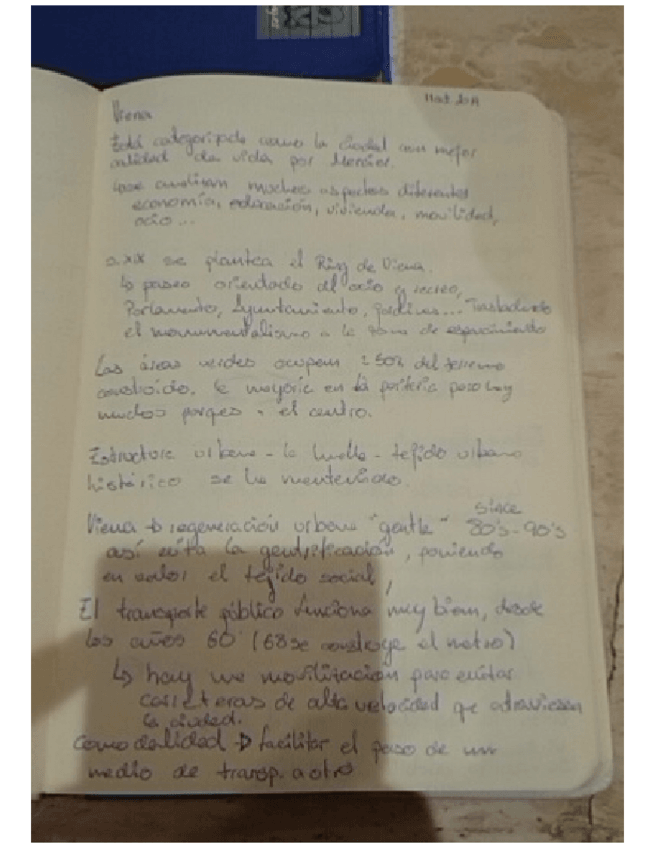 Viena
Está categorizada como la ciudad con mejor
calidad de vida por Mercer.
se analizan muchos aspectos diferentes
economía, educación, vivienda, movilidad,
ocio...
s.XX se plantea el Ring de Viena.
↳ paseo orientado al ocio y recreo,
Parlamento, Ayuntamiento, jardines... Trasladando
el monumentalismo a la zona de esparcimiento
Las áreas verdes ocupan 50% del terreno
construido, la mayoría en la periferia pero hay
muchos parques en el centro.
Estructura urbana - la huella - tejido urbano
histórico se ha mantenido.
Viena → regeneración urbana "gentle" since 80's-90's
así evita la gentrificación, poniendo
en valor el tejido social
El transporte público funciona muy bien, desde
los años 60 (68 se construye el metro)
↳ hay una movilización para evitar
carreteras de alta velocidad que atraviesen
la ciudad.
comodalidad → facilitar el paso de un
medio de transp. a otro